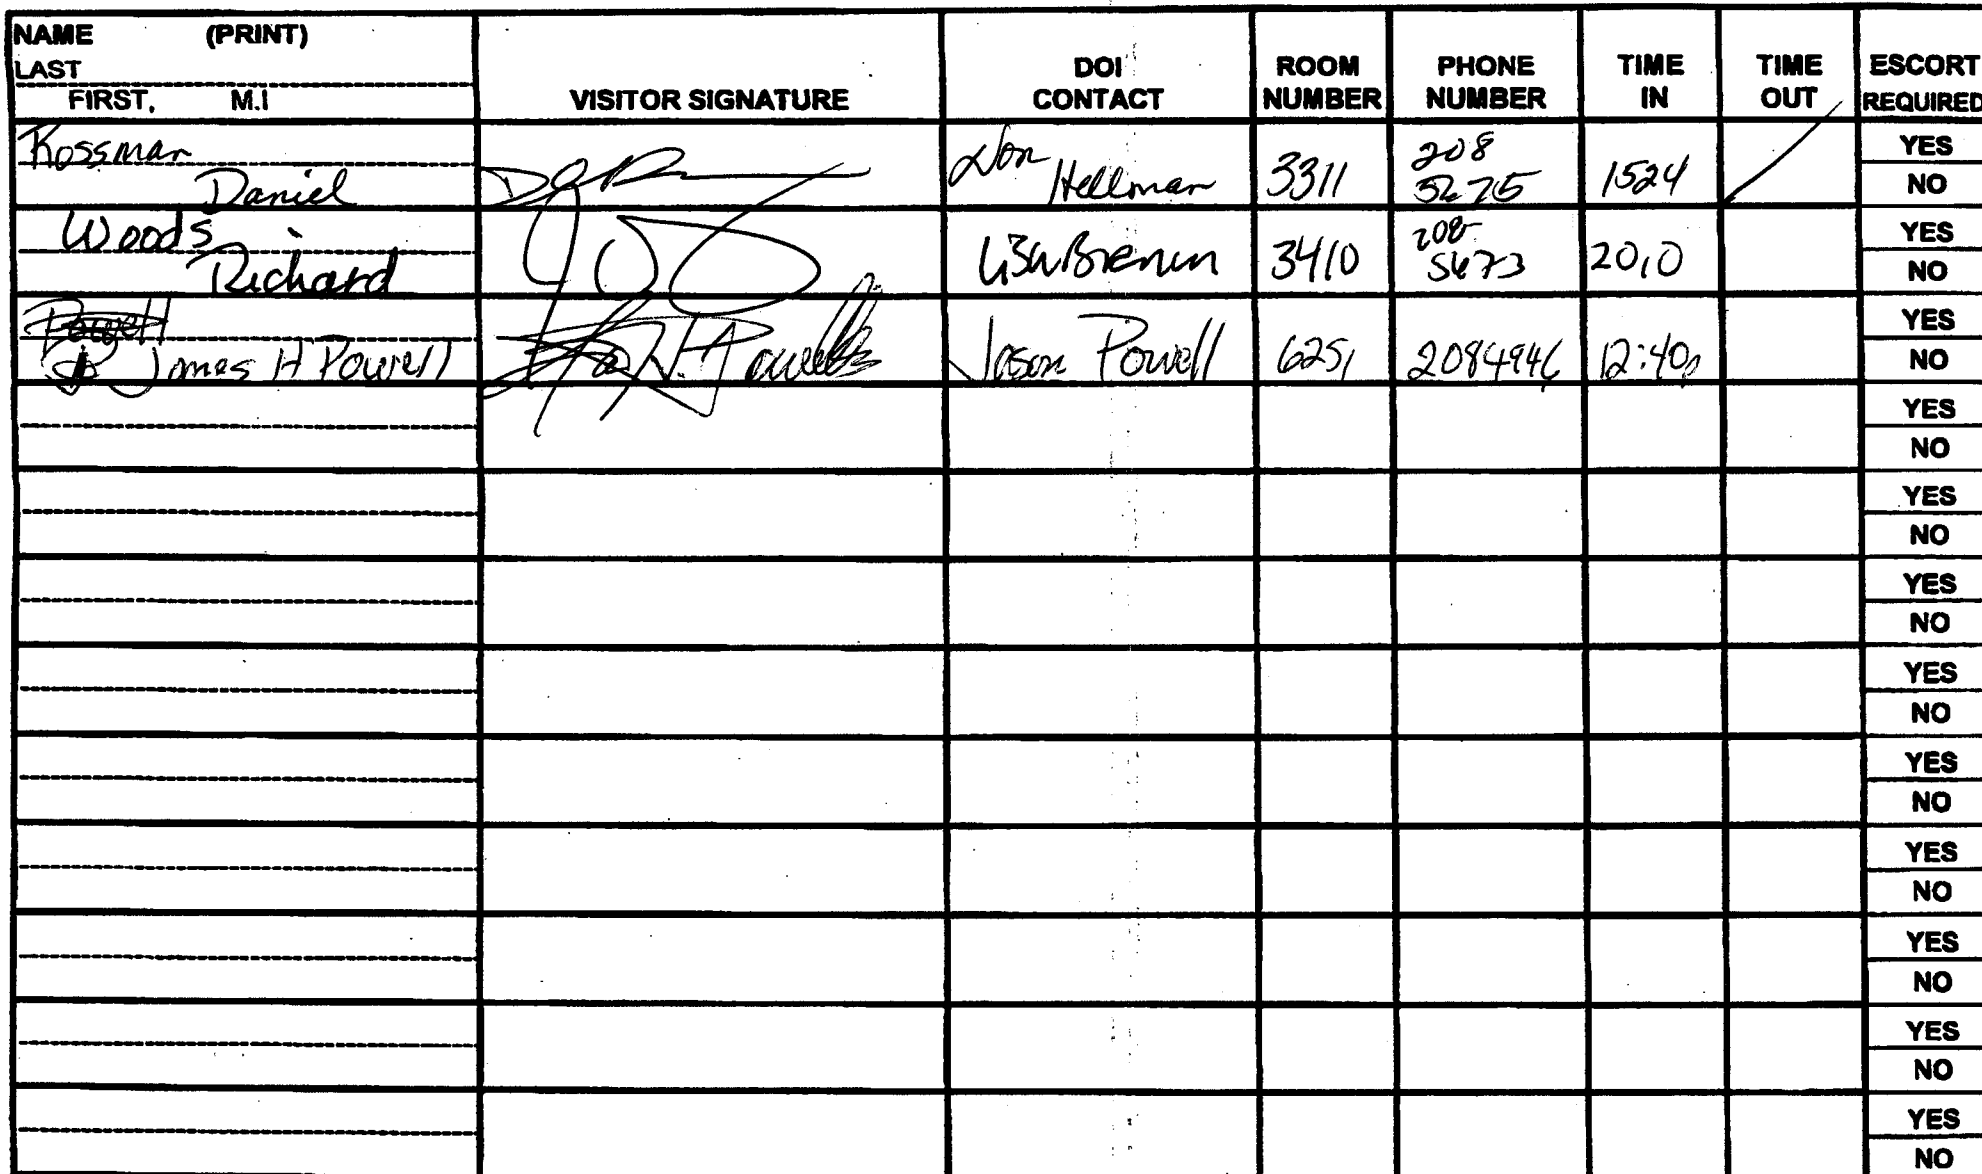 NAME (PRINT)
LAST
FIRST, M.I
VISITOR SIGNATURE
DOI
CONTACT
ROOM
NUMBER
PHONE
NUMBER
TIME
IN
TIME
OUT
ESCORT
REQUIRED
Kossman
Daniel
Don
Hellman
3311
208
1524
YES
NO
Woods
Richard
3410
208
5673
2010
YES
NO
Powell
James H Powell
H. Powell
Jason Powell
6251
2084946
12:40p
YES
NO
YES
NO
YES
NO
YES
NO
YES
NO
YES
NO
YES
NO
YES
NO
YES
NO
YES
NO